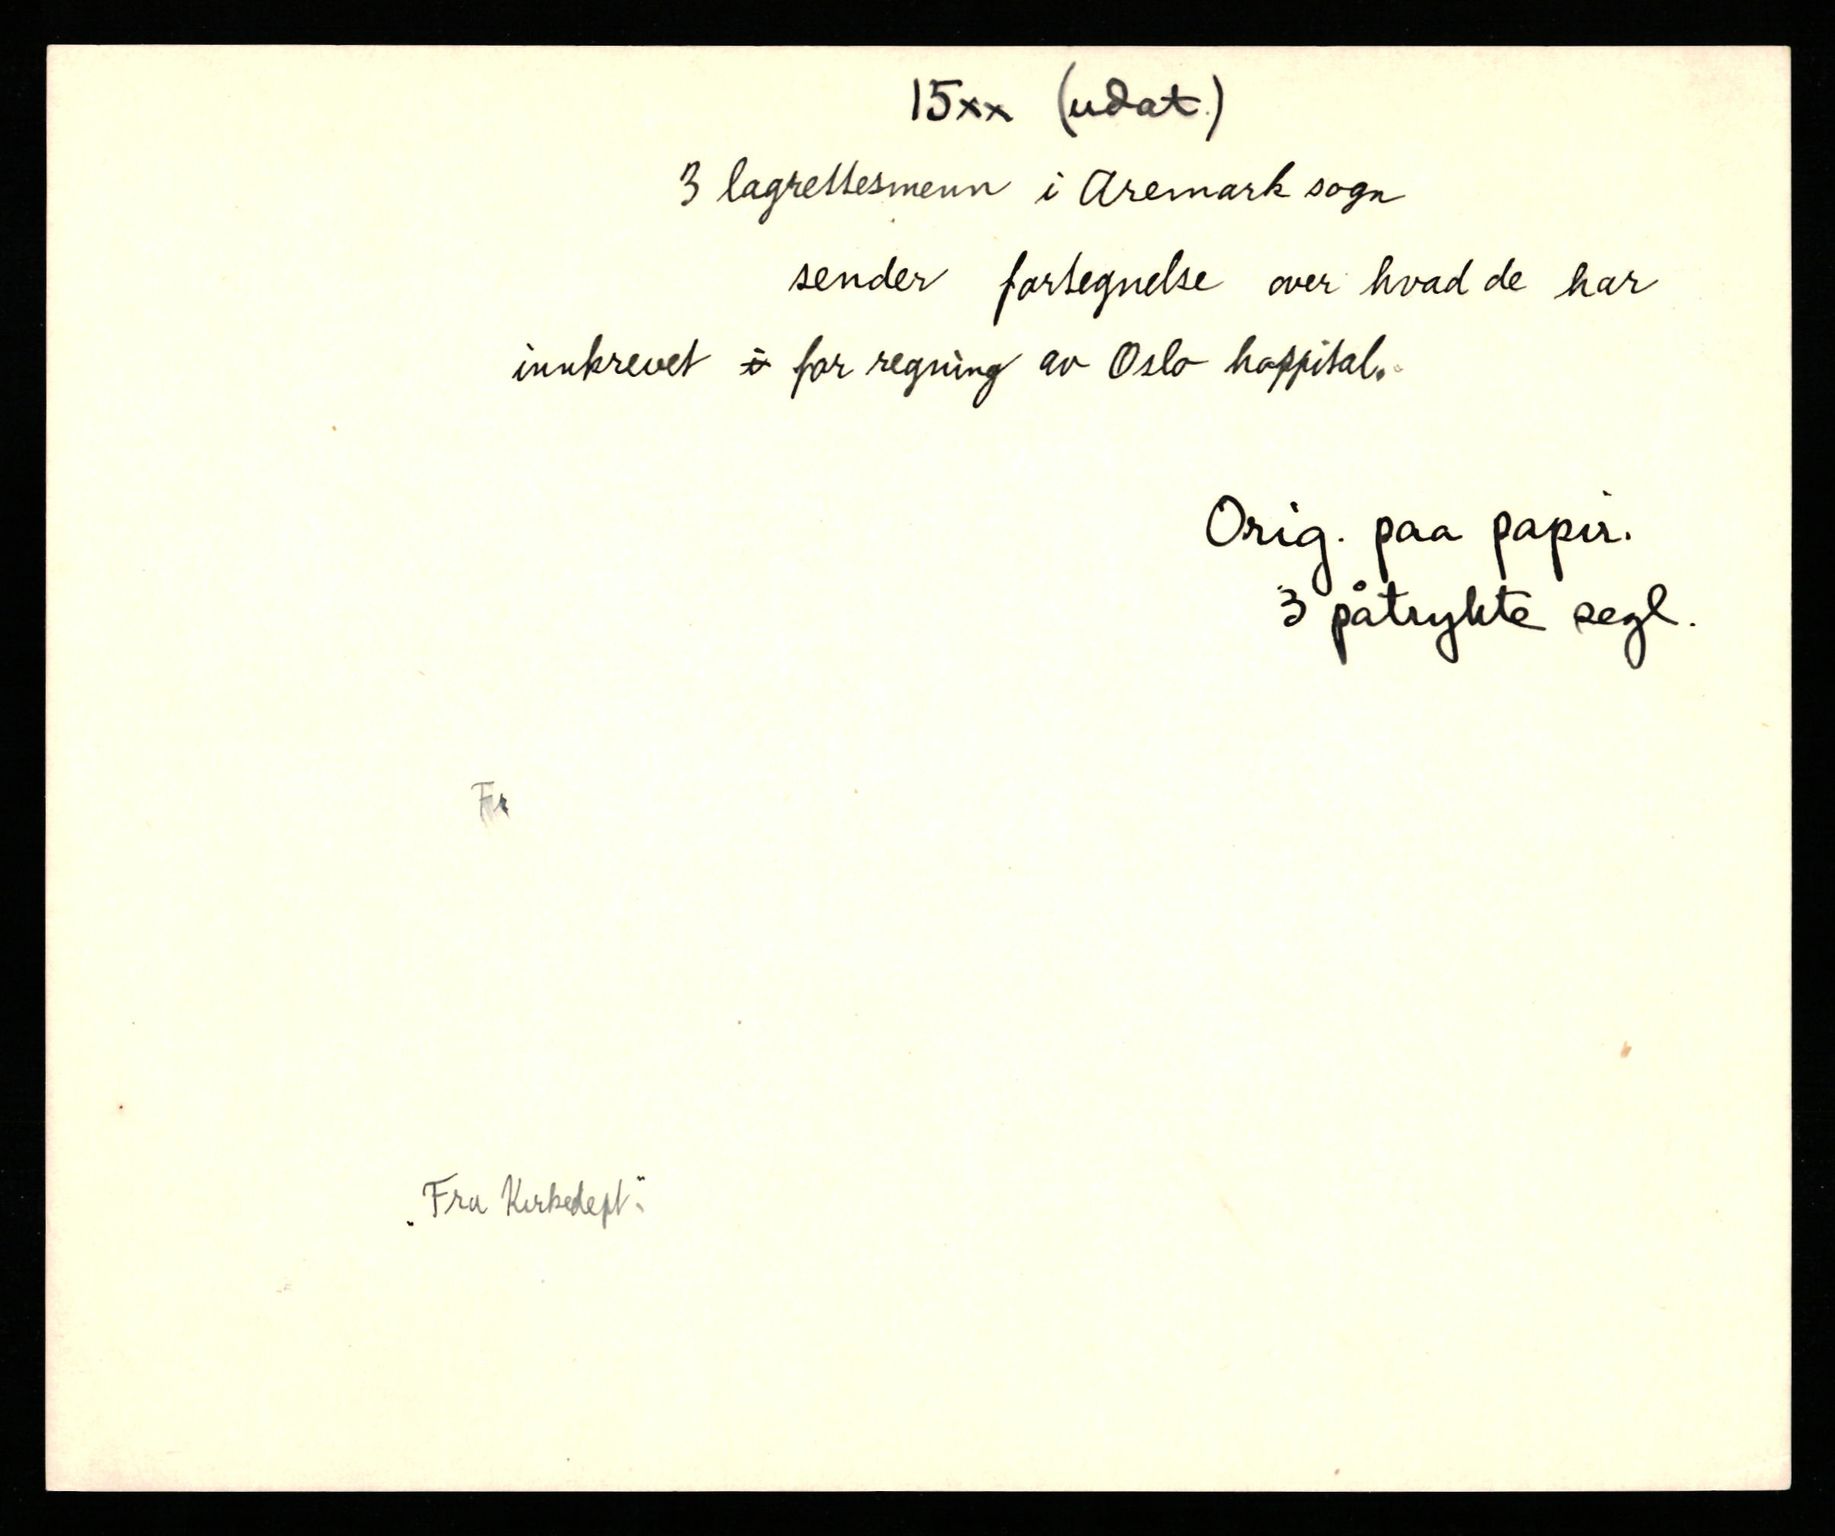 15xx (udat.)
3 lagrettesmenn i Aremark sogn
sender fortegnelse over hvad de har
innkrevet i for regning av Oslo hospital.
Orig. paa papir.
3 påtrykte segl.
Fr
"Fra Kirkedept."